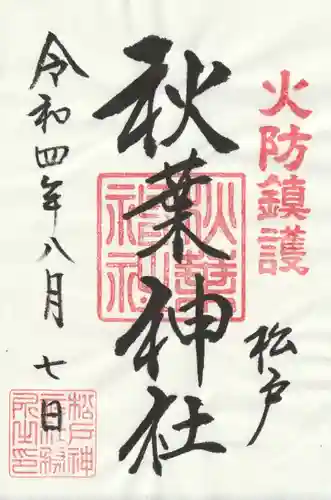 火防鎮護
松戸
秋葉神社
令和四年八月七日
秋葉
神社
松戸神